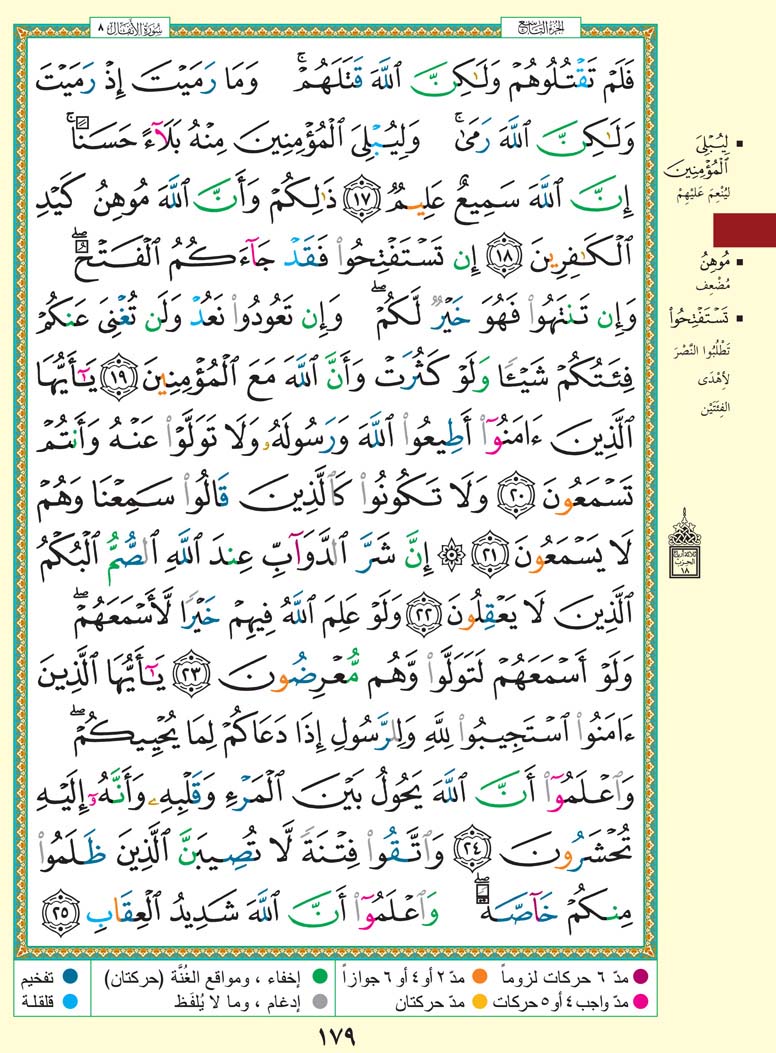 الجزء التاسع
سورة الأنفال ٨
فَلَمْ تَقْتُلُوهُمْ وَلَٰكِنَّ ٱللَّهَ قَتَلَهُمْ ۚ وَمَا رَمَيْتَ إِذْ رَمَيْتَ
وَلَٰكِنَّ ٱللَّهَ رَمَىٰ ۚ وَلِيُبْلِىَ ٱلْمُؤْمِنِينَ مِنْهُ بَلَآءً حَسَنًا ۚ
إِنَّ ٱللَّهَ سَمِيعٌ عَلِيمٌ ١٧ ذَٰلِكُمْ وَأَنَّ ٱللَّهَ مُوهِنُ كَيْدِ
ٱلْكَٰفِرِينَ ١٨ إِن تَسْتَفْتِحُوا۟ فَقَدْ جَآءَكُمُ ٱلْفَتْحُ ۖ
وَإِن تَنتَهُوا۟ فَهُوَ خَيْرٌ لَّكُمْ ۖ وَإِن تَعُودُوا۟ نَعُدْ وَلَن تُغْنِىَ عَنكُمْ
فِئَتُكُمْ شَيْـًٔا وَلَوْ كَثُرَتْ وَأَنَّ ٱللَّهَ مَعَ ٱلْمُؤْمِنِينَ ١٩ يَٰٓأَيُّهَا
ٱلَّذِينَ ءَامَنُوٓا۟ أَطِيعُوا۟ ٱللَّهَ وَرَسُولَهُۥ وَلَا تَوَلَّوْا۟ عَنْهُ وَأَنتُمْ
تَسْمَعُونَ ٢٠ وَلَا تَكُونُوا۟ كَٱلَّذِينَ قَالُوا۟ سَمِعْنَا وَهُمْ
لَا يَسْمَعُونَ ٢١ ۞ إِنَّ شَرَّ ٱلدَّوَآبِّ عِندَ ٱللَّهِ ٱلصُّمُّ ٱلْبُكْمُ
ٱلَّذِينَ لَا يَعْقِلُونَ ٢٢ وَلَوْ عَلِمَ ٱللَّهُ فِيهِمْ خَيْرًا لَّأَسْمَعَهُمْ ۖ
وَلَوْ أَسْمَعَهُمْ لَتَوَلَّوا۟ وَّهُم مُّعْرِضُونَ ٢٣ يَٰٓأَيُّهَا ٱلَّذِينَ
ءَامَنُوا۟ ٱسْتَجِيبُوا۟ لِلَّهِ وَلِلرَّسُولِ إِذَا دَعَاكُمْ لِمَا يُحْيِيكُمْ ۖ
وَٱعْلَمُوٓا۟ أَنَّ ٱللَّهَ يَحُولُ بَيْنَ ٱلْمَرْءِ وَقَلْبِهِۦ وَأَنَّهُۥٓ إِلَيْهِ
تُحْشَرُونَ ٢٤ وَٱتَّقُوا۟ فِتْنَةً لَّا تُصِيبَنَّ ٱلَّذِينَ ظَلَمُوا۟
مِنكُمْ خَآصَّةً ۖ وَٱعْلَمُوٓا۟ أَنَّ ٱللَّهَ شَدِيدُ ٱلْعِقَابِ ٢٥
■ لِيُبْلِىَ
ٱلْمُؤْمِنِينَ
لِيُنْعِمَ عَلَيْهِمْ
■ مُوهِنُ
مُضْعِف
■ تَسْتَفْتِحُوا۟
تَطْلُبُوا النَّصْرَ
لأهْدَى
الفِئَتَيْن
ثلاثة أرباع
الحزب
١٨
● مدّ ٦ حركات لزوماً ● مدّ ٢ أو ٤ أو ٦ جوازاً ● إخفاء ، ومواقع الغُنَّة (حركتان) ● تفخيم
● مدّ واجب ٤ أو ٥ حركات ● مدّ حركتان ● إدغام ، وما لا يُلفَظ ● قلقلة
١٧٩